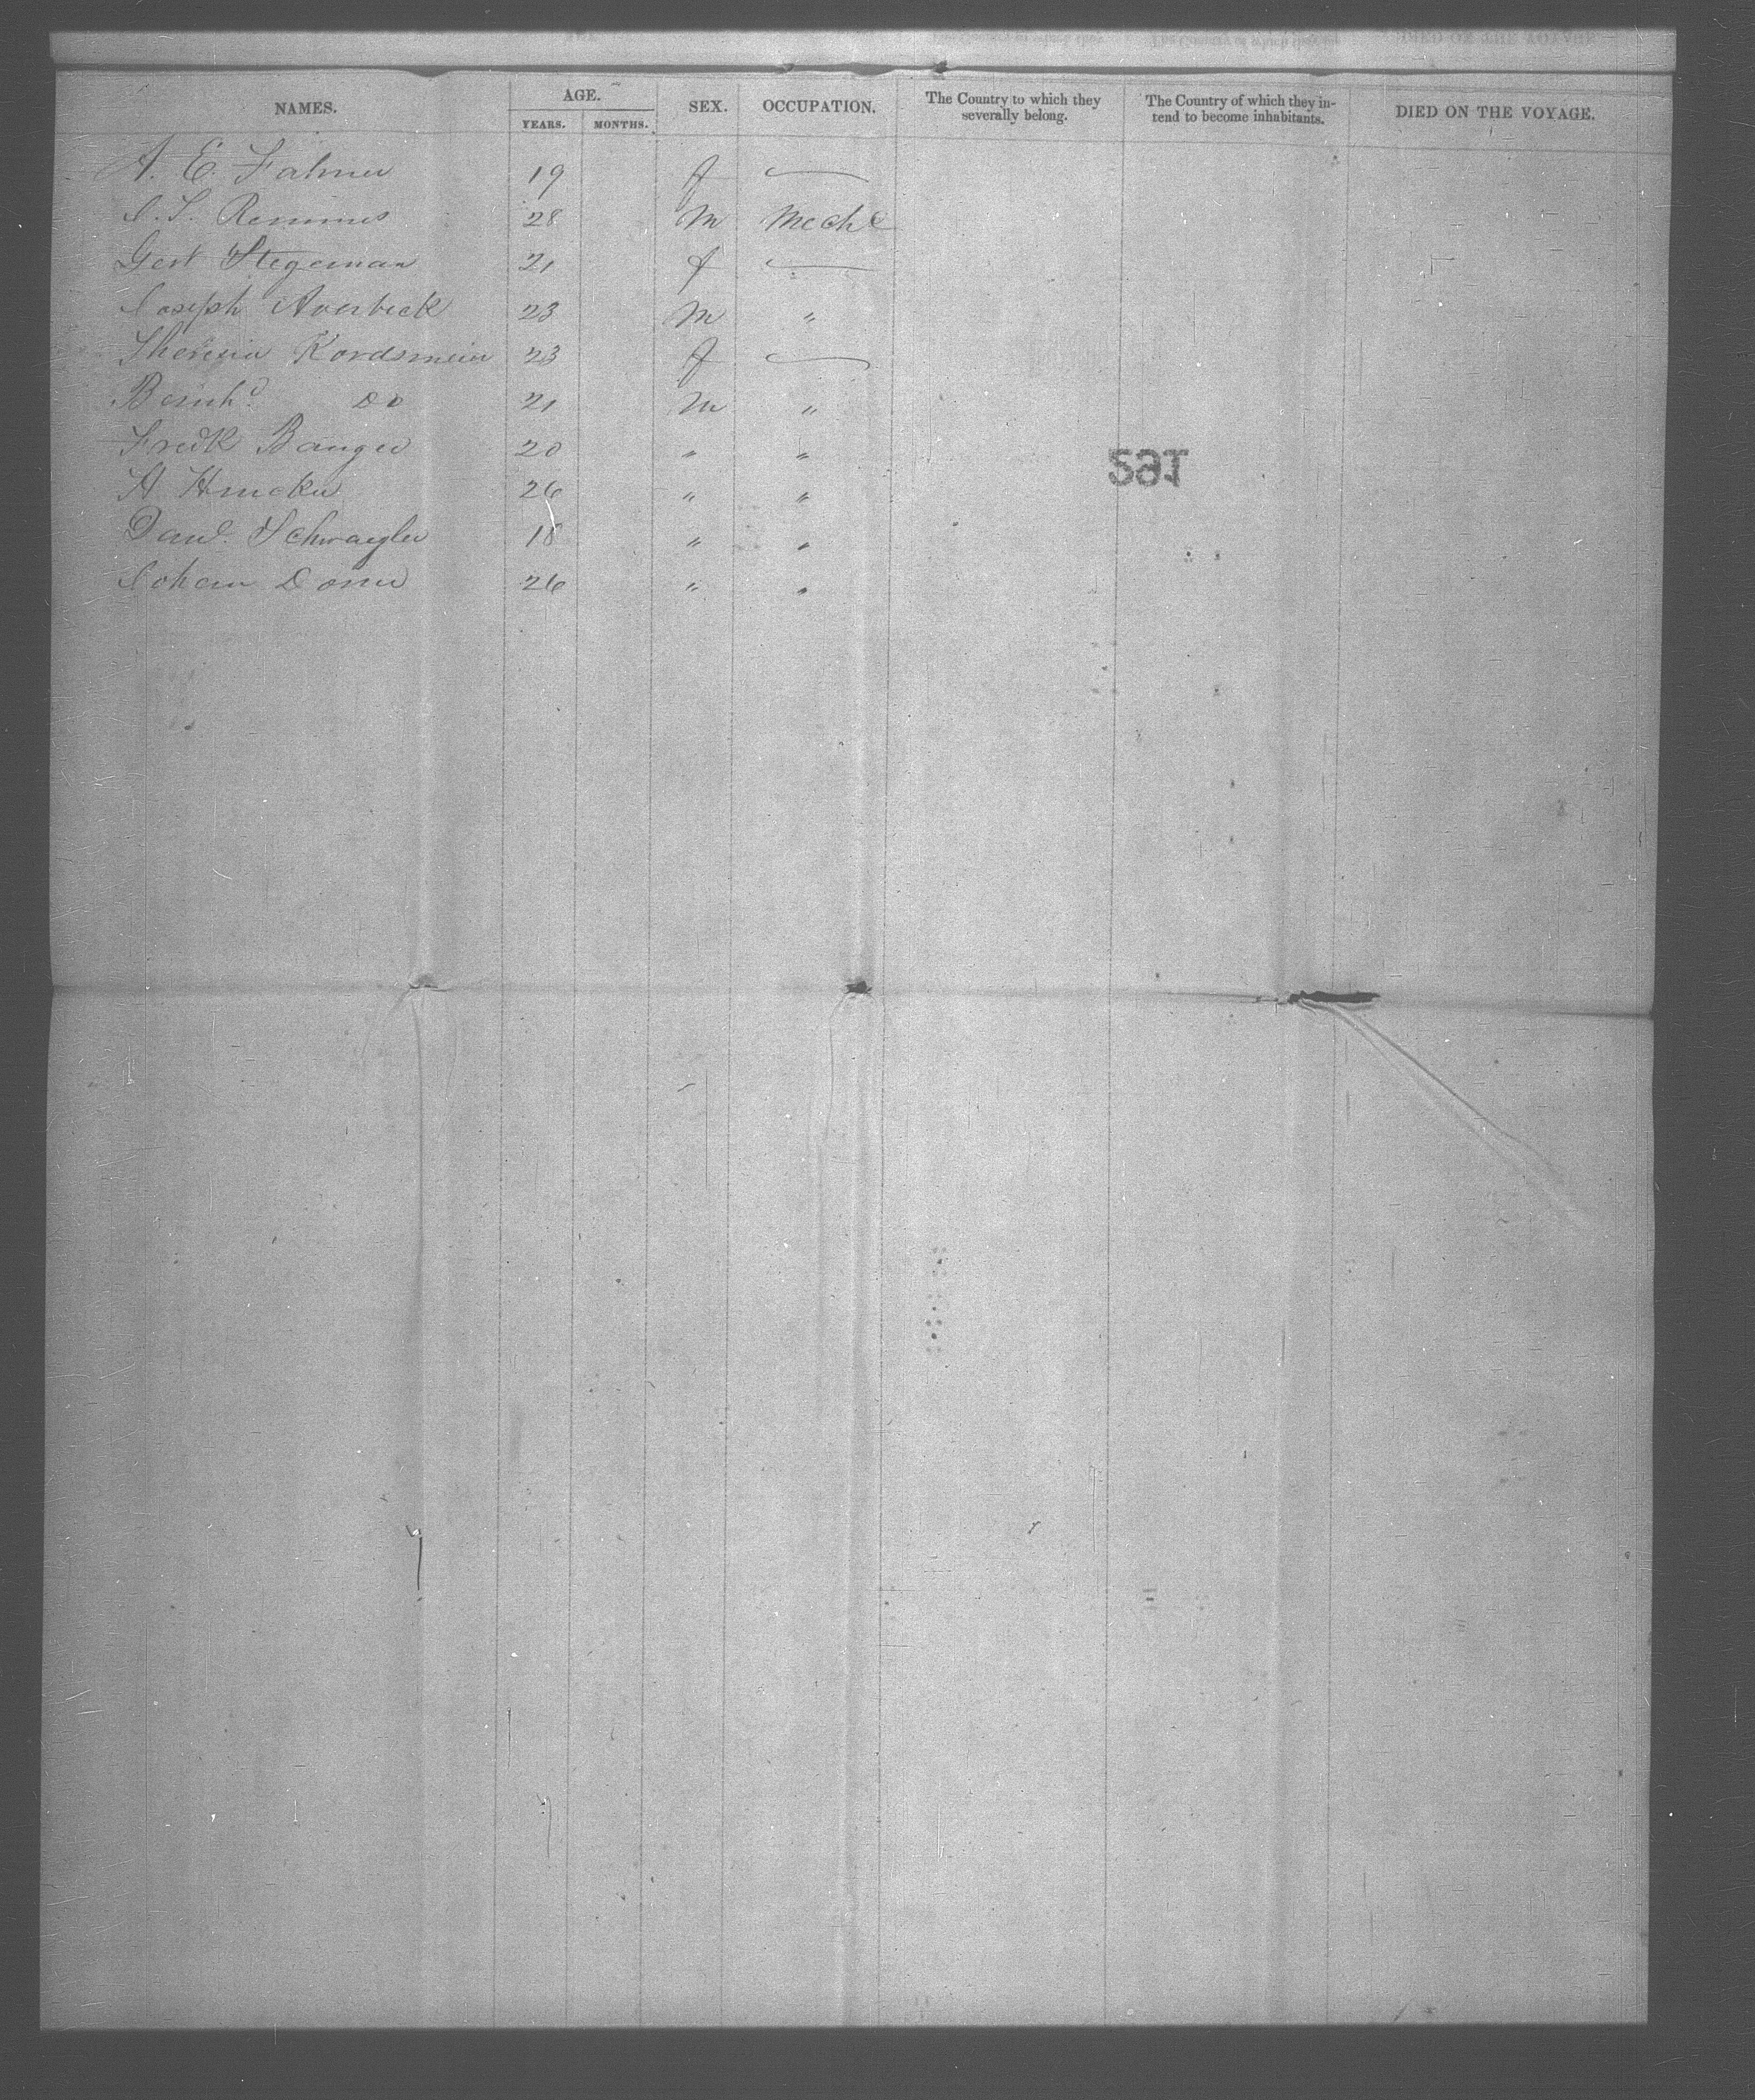 NAMES. AGE. SEX. OCCUPATION. The Country to which they severally belong. The Country of which they intend to become inhabitants. DIED ON THE VOYAGE.
YEARS. MONTHS.
A. E. Falmer 19 f —
I. S. Remmes 28 m Mechc
Gert Stegeman 21 f —
Joseph Averbeck 23 m "
Theresia Kordsmeier 23 f —
Bernhd. Do 21 m "
Fredk Banger 20 " "
A 26 " "
Danl. Schwaigler 18 " "
Johan Doner 26 " "